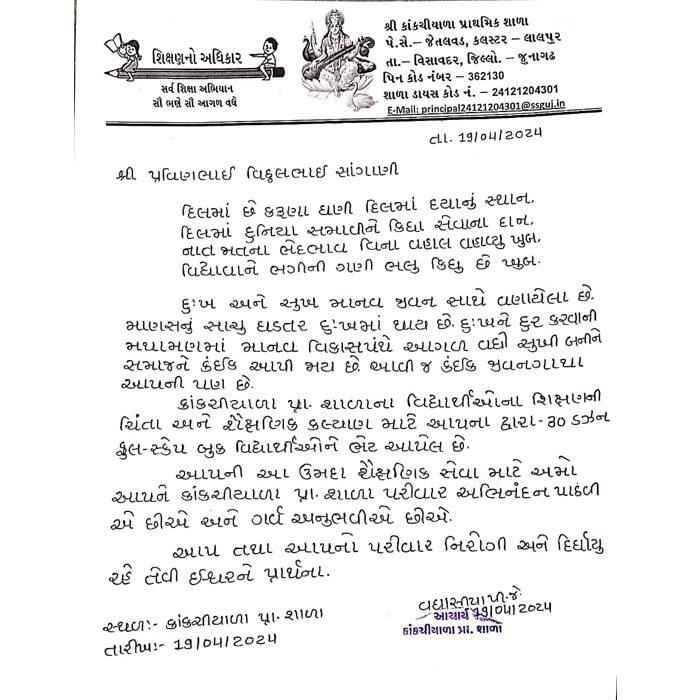 શિક્ષણનો અધિકાર
સર્વ શિક્ષા અભિયાન
સૌ ભણે સૌ આગળ વધે
શ્રી કાંકચીયાળા પ્રાથમિક શાળા
પે.સે.– જેતલવડ, કલસ્ટર – લાલપુર
તા.– વિસાવદર, જિલ્લો. – જુનાગઢ
પિન કોડ નંબર – 362130
શાળા ડાયસ કોડ નં. – 24121204301
E-Mail: principal24121204301@ssguj.in
તા. 19/04/2024
શ્રી પ્રવિણભાઈ વિઠ્ઠલભાઈ સાંગાણી
દિલમાં છે કરૂણા ઘણી દિલમાં દયાનું સ્થાન,
દિલમાં દુનિયા સમાવીને કિધા સેવાના દાન,
નાત જાતના ભેદભાવ વિના વહાલ વહાવ્યુ ખુબ,
વિધવાને ભગીની ગણી ભલુ કિધુ છે ખુબ.
દુઃખ અને સુખ માનવ જીવન સાથે વણાયેલા છે.
માણસનું સાચુ ઘડતર દુઃખમાં થાય છે. દુઃખને દુર કરવાની
મથામણમાં માનવ વિકાસપંથે આગળ વધી સુખી બનીને
સમાજને કંઈક આપી જાય છે. આવી જ કંઈક જીવનગાથા
આપની પણ છે.
કાંકચીયાળા પ્રા. શાળાના વિદ્યાર્થીઓના શિક્ષણની
ચિંતા અને શૈક્ષણિક કલ્યાણ માટે આપના દ્વારા - 30 ડઝન
ફુલ-સ્કેપ બુક વિદ્યાર્થીઓને ભેટ આપેલ છે.
આપની આ ઉમદા શૈક્ષણિક સેવા માટે અમો
આપને કાંકચીયાળા પ્રા. શાળા પરીવાર અભિનંદન પાઠવી
એ છીએ અને ગર્વ અનુભવીએ છીએ.
આપ તથા આપનો પરીવાર નિરોગી અને દિર્ઘાયુ
રહે તેવી ઈશ્વરને પ્રાર્થના.
સ્થળઃ- કાંકચીયાળા પ્રા. શાળા
તારીખઃ- 19/04/2024
વઘાસીયા પી.જે
આચાર્ય 19/04/2024
કાંકચીયાળા પ્રા. શાળા